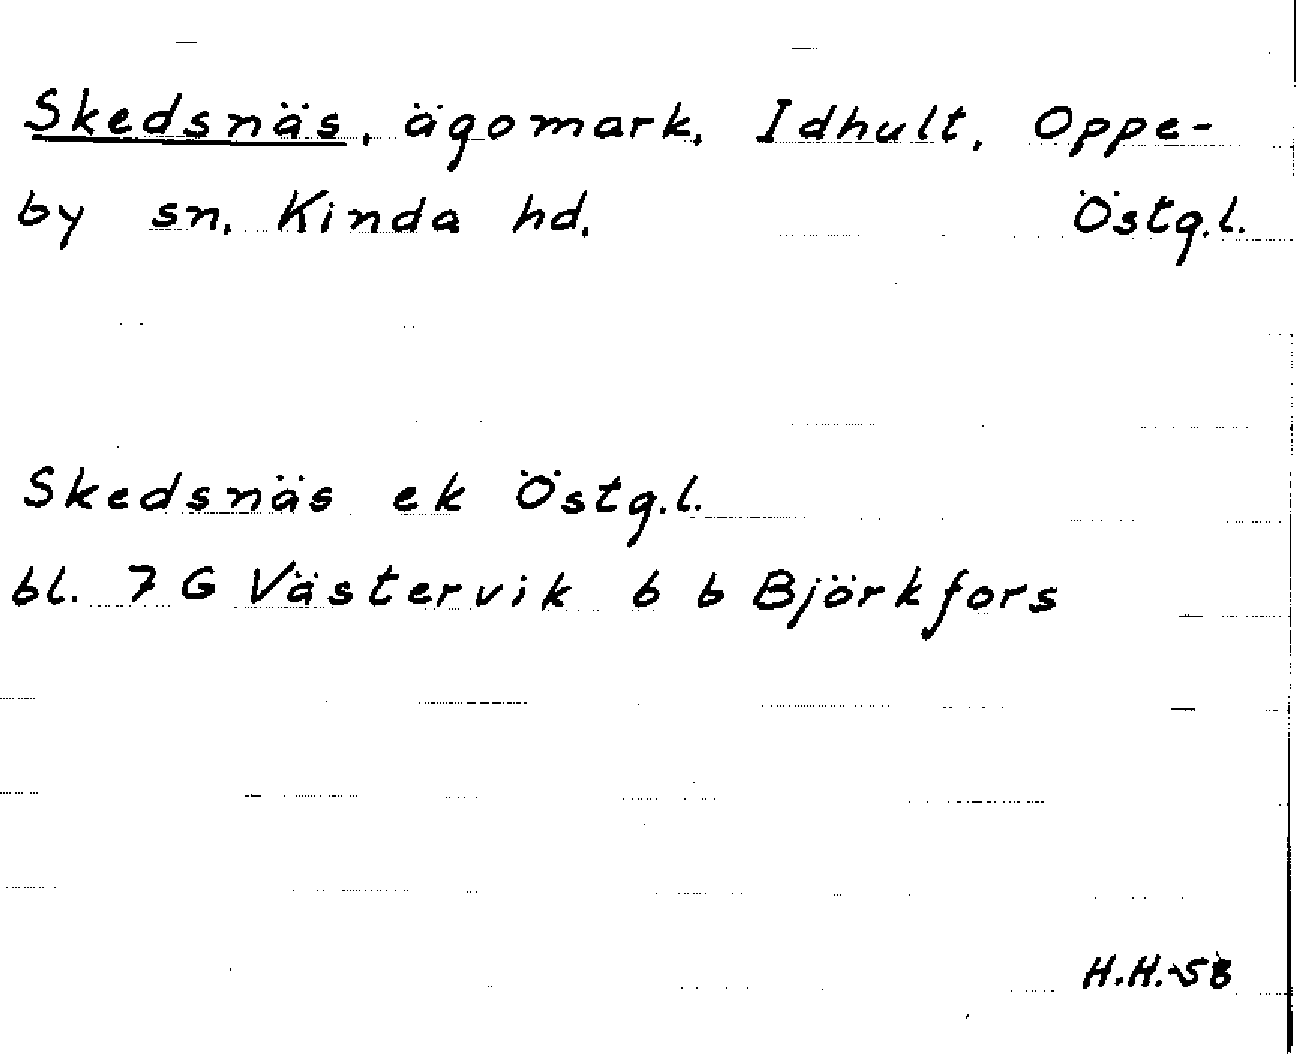 Skedsnäs, ägomark, Idhult, Oppe-
by sn, Kinda hd, Östg.l.
Skedsnäs ek Östg.l.
bl. 7 G Västervik 6 b Björkfors
H.H.-58